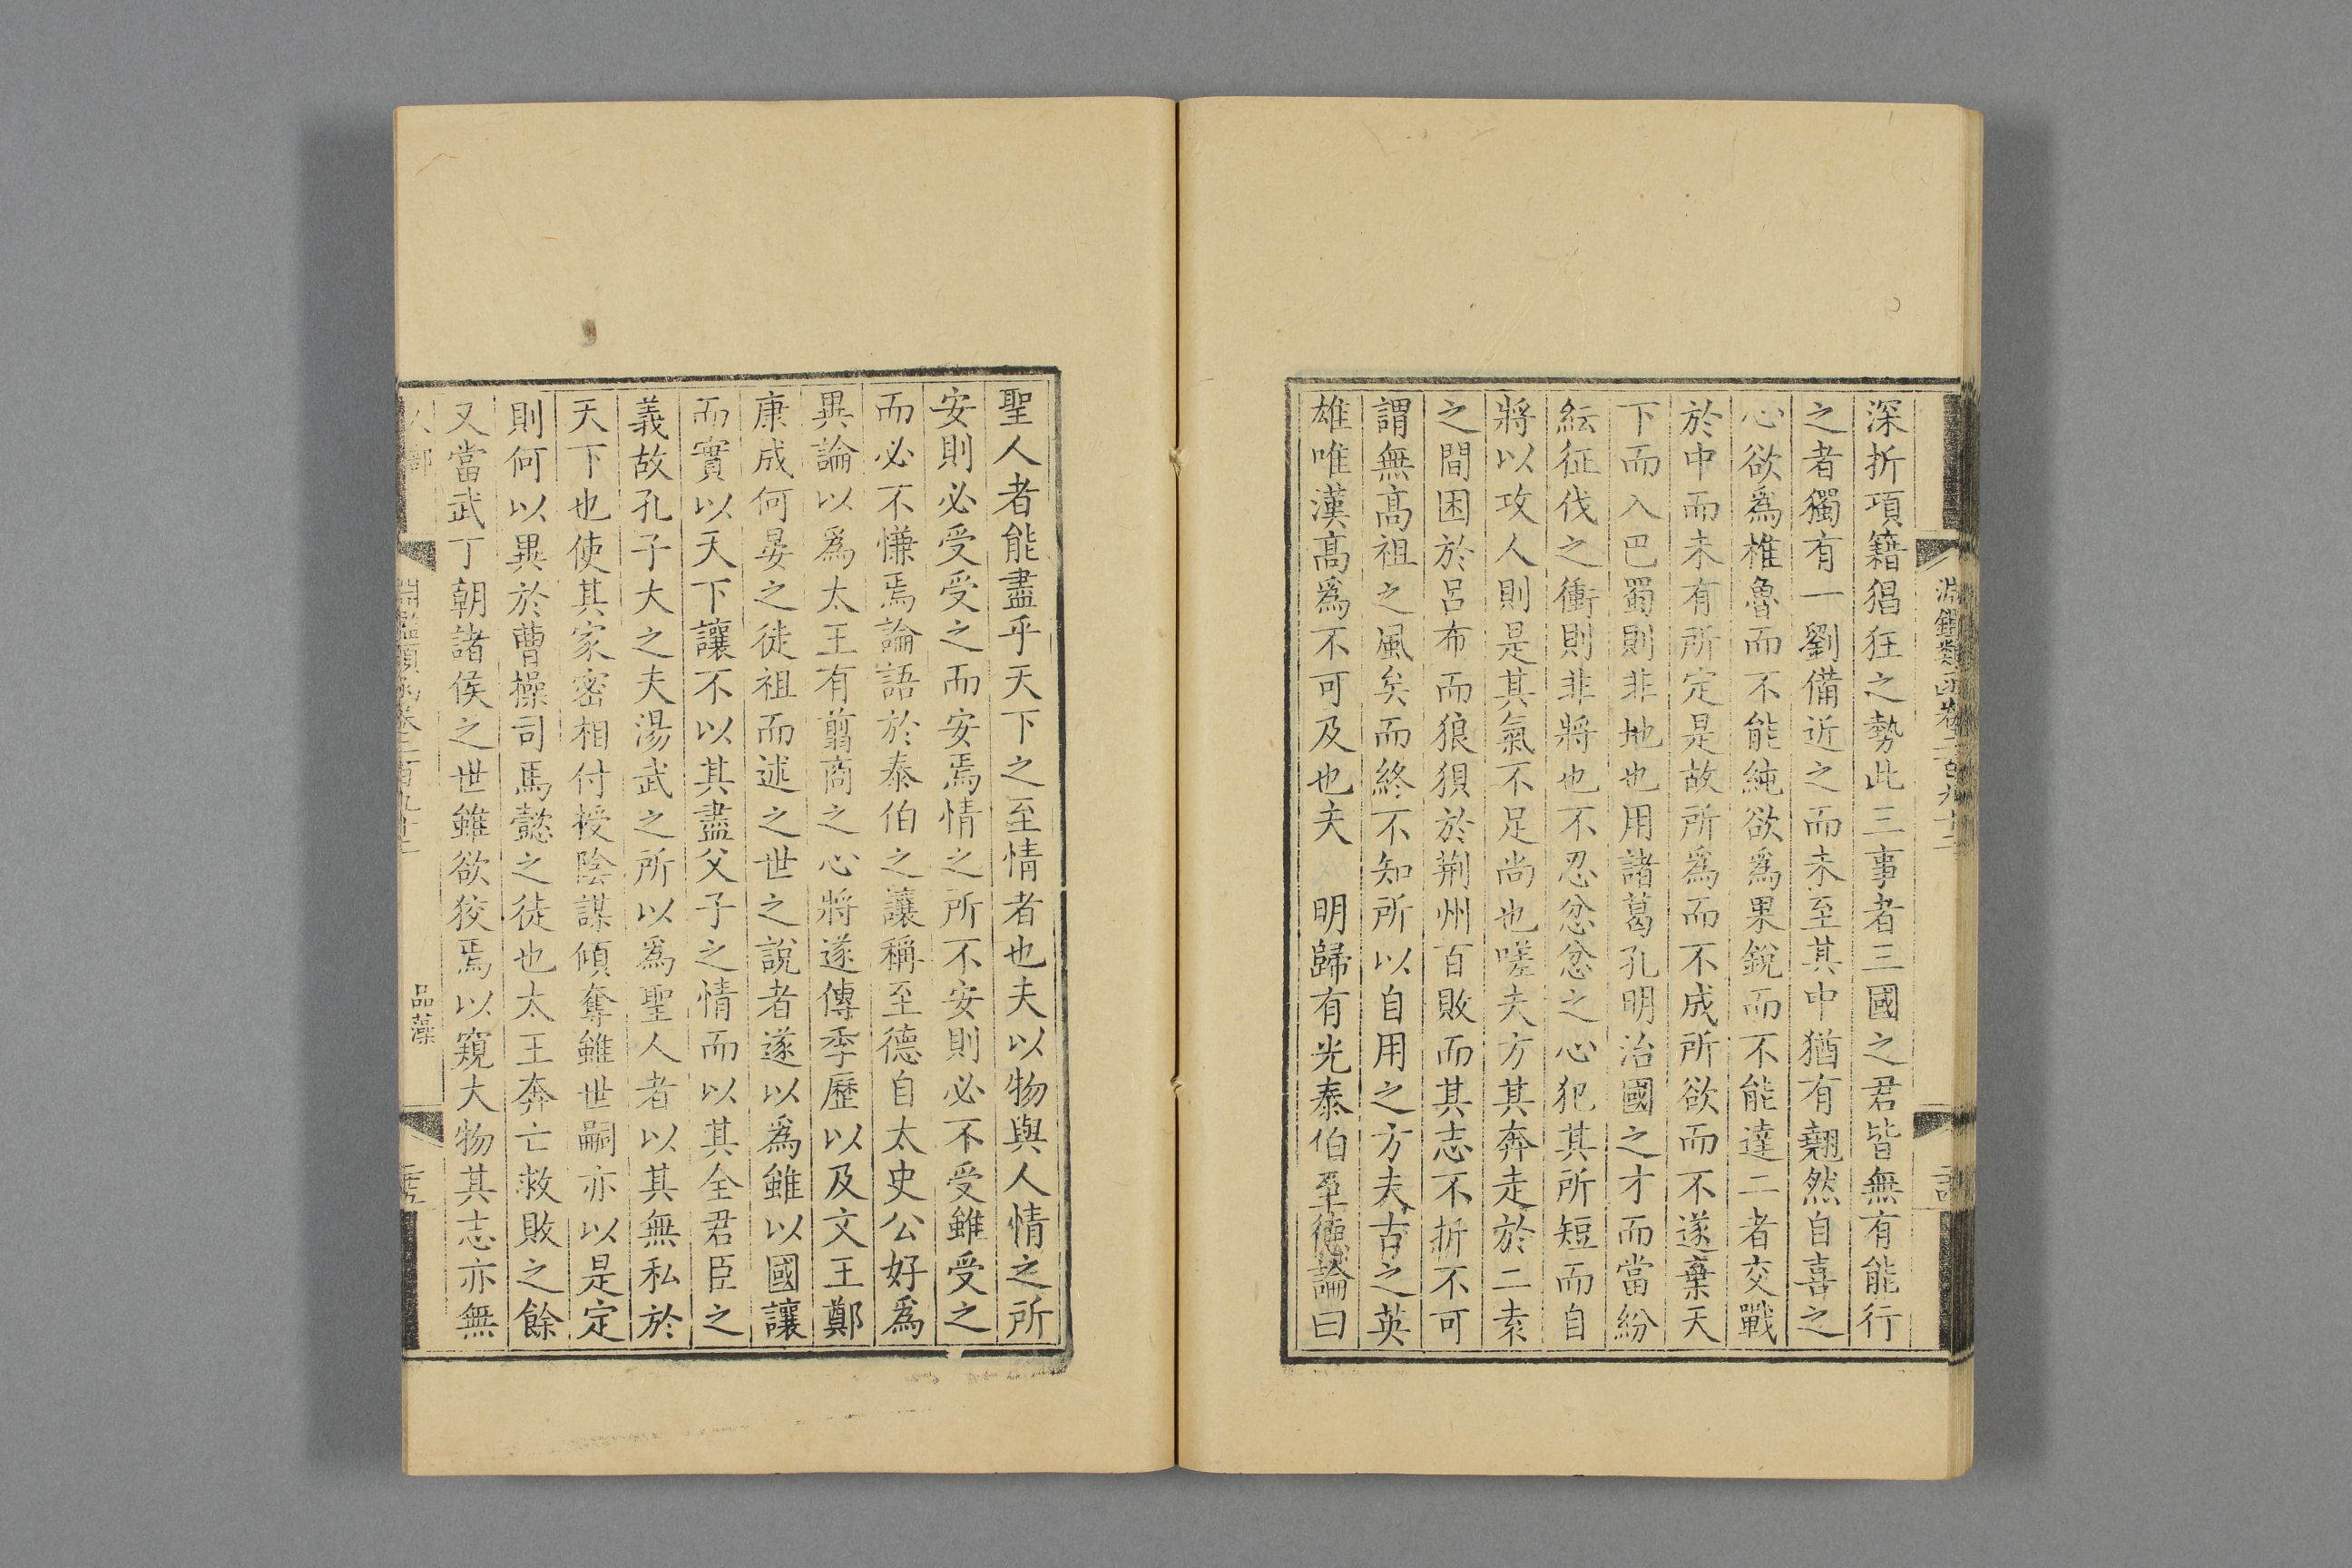 深折項籍猖狂之勢此三事者三國之君皆無有能行
之者獨有一劉備近之而未至其中猶有翹然自喜之
心欲爲椎魯而不能純欲爲果銳而不能達二者交戰
於中而未有所定是故所爲而不成所欲而不遂棄天
下而入巴蜀則非地也用諸葛孔明治國之才而當紛
紜征伐之衝則非將也不忍忿忿之心犯其所短而自
將以攻人則是其氣不足尚也嗟夫方其奔走於二袁
之間困於呂布而狼狽於荆州百敗而其志不折不可
謂無高祖之風矣而終不知所以自用之方夫古之英
雄唯漢高爲不可及也夫　明歸有光泰伯至德論曰
聖人者能盡乎天下之至情者也夫以物與人情之所
安則必受受之而安焉情之所不安則必不受雖受之
而必不慊焉論語於泰伯之讓稱至德自太史公好爲
異論以爲太王有翦商之心將遂傳季歷以及文王鄭
康成何晏之徒祖而述之世之說者遂以爲雖以國讓
而實以天下讓不以其盡父子之情而以其全君臣之
義故孔子大之夫湯武之所以爲聖人者以其無私於
天下也使其家密相付授陰謀傾奪雖世嗣亦以是定
則何以異於曹操司馬懿之徒也太王奔亡救敗之餘
又當武丁朝諸侯之世雖欲狡焉以窺大物其志亦無
淵鑑類函卷二百九十二
品藻